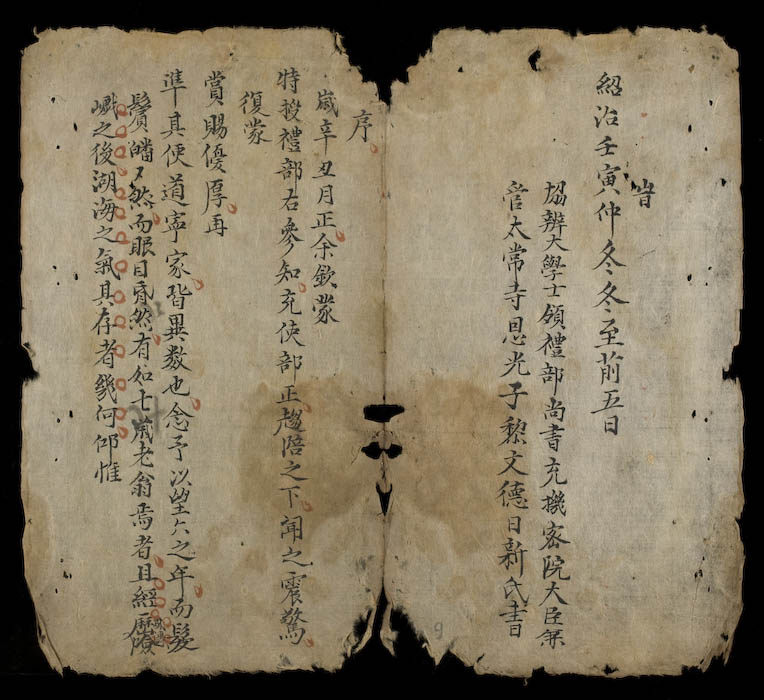 旹
紹治壬寅仲冬冬至前五日
協辨大學士領禮部尚書充機密院大臣兼
管太常寺恩光子黎文德日新氏書
序
歲辛丑月正余欽蒙
特授禮部右參知充使部正趨陪之下聞之震驚
復蒙
賞賜優厚再
準其便道寧家皆異數也念予以望六之年而髮
鬢皤々然而眼目昏然有如七歲老翁焉者且經歷險
巇之後湖海之氣其存者幾何仰惟
9